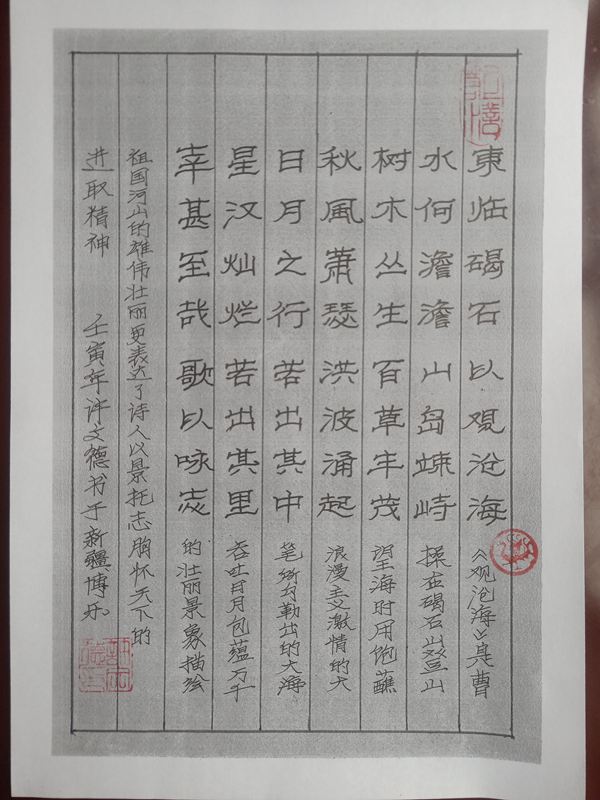 東临碣石以观沧海
水何澹澹山岛竦峙
树木丛生百草丰茂
秋風萧瑟洪波涌起
日月之行若出其中
星汉灿烂若出其里
幸甚至哉歌以咏志
《观沧海》是曹
操在碣石山登山
望海时用饱蘸
浪漫主义激情的大
笔所勾勒出的大海
吞吐日月包蕴万千
的壮丽景象描绘
祖国河山的雄伟壮丽更表达了诗人以景托志胸怀天下的
进取精神
壬寅年许文德书于新疆博乐